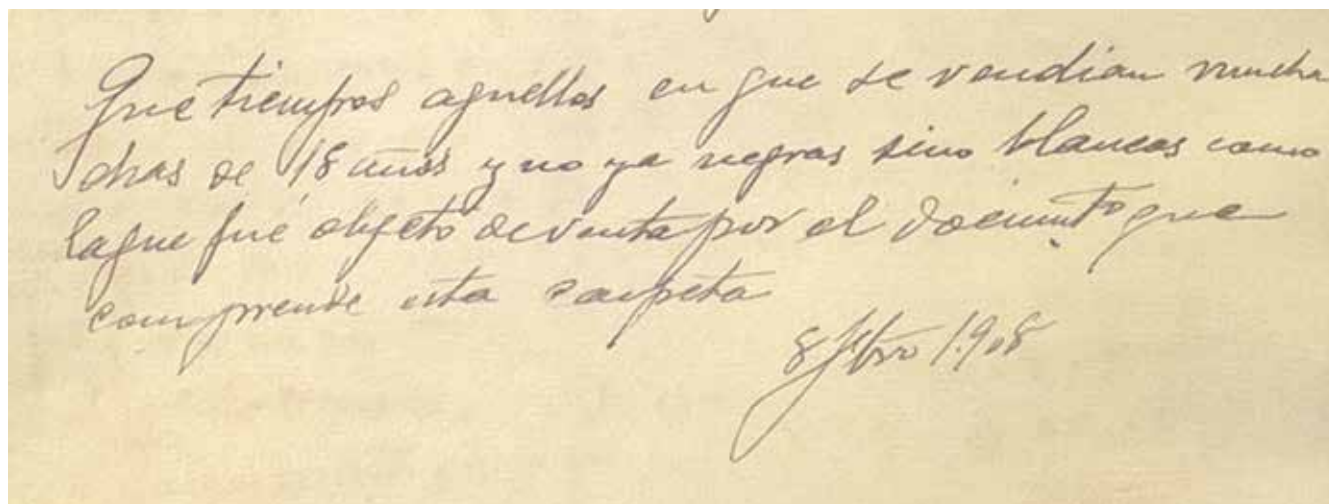 Que tiempos aquellos en que se vendian mucha
chas de 18 años y no ya negras sino blancas como
la que fué objeto de venta por el docum^to que
comprende esta carpeta
8 Fbro 1.908